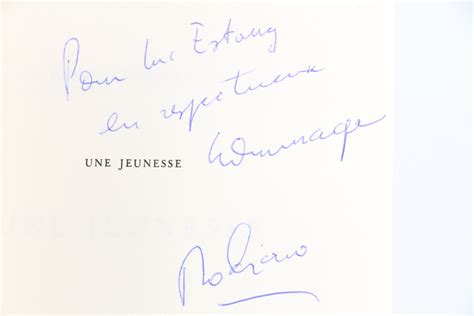 Pour Luc Estang
en respectueux
hommage
UNE JEUNESSE
Modiano